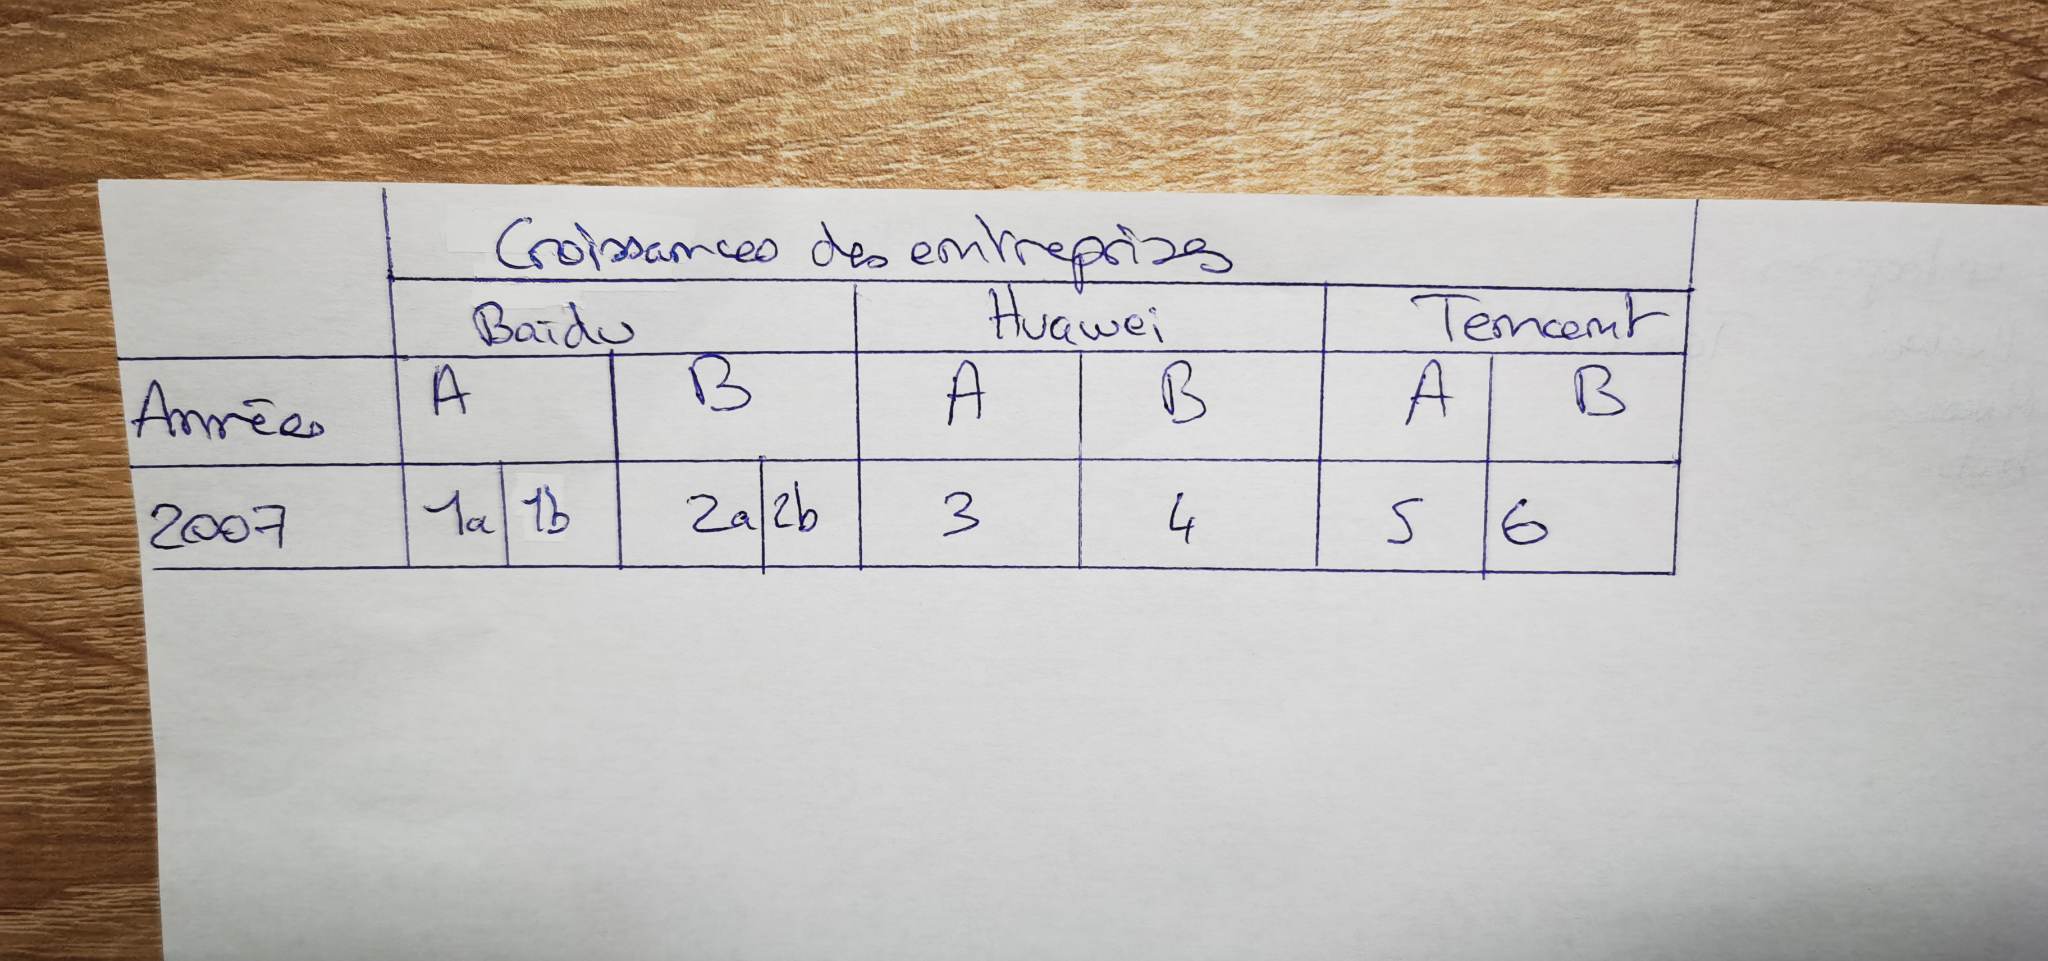 Croissances des entreprises
Baïdu Huawei Tencent
Années A B A B A B
2007 1a 1b 2a 2b 3 4 5 6